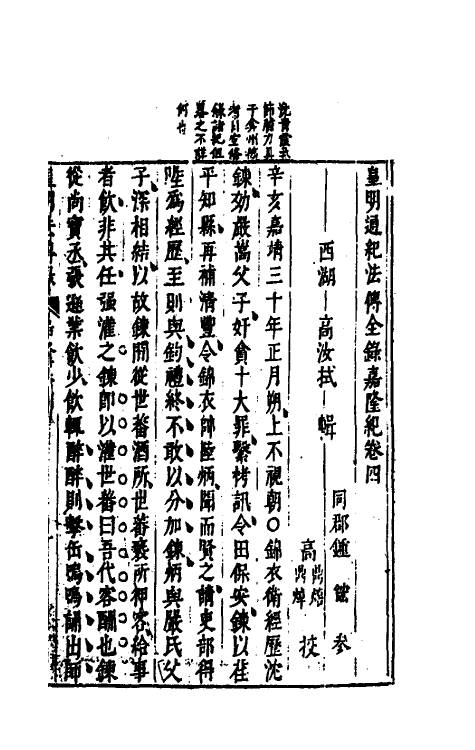 皇明通紀法傳全錄嘉隆紀卷四
西湖 高汝栻 輯
同郡鍾 參
高 校
辛亥嘉靖三十年正月朔上不視朝○錦衣衛經歷沈
鍊劾嚴嵩父子奸貪十大罪繫拷訊令田保安鍊以茌
平知縣再補清豐令錦衣帥陸炳聞而賢之請吏部得
陞爲經歷至則與鈞禮終不敢以分加鍊炳與嚴氏父
子深相結以故鍊間從世蕃酒所世蕃褻所狎客給事
者飲非其任强灌之鍊即以灌世蕃曰吾代客酬也鍊
從尚寶丞張遜業飲少飲輒醉醉則擊缶嗚嗚誦出師
沈青霞